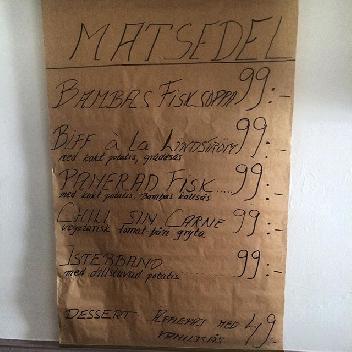 MATSEDEL
BAMBAS FISKSOPPA 99:-
BIFF à la LINDSTRÖM 99:-
med kokt potatis, gräddsås
PANERAD FISK.... 99:-
med kokt potatis, bambas kallsås
CHILI SIN CARNE 99:-
vegetarisk tomat
ISTERBAND 99:-
med dillstuvad potatis
DESSERT MED 49:-
VANILJSÅS